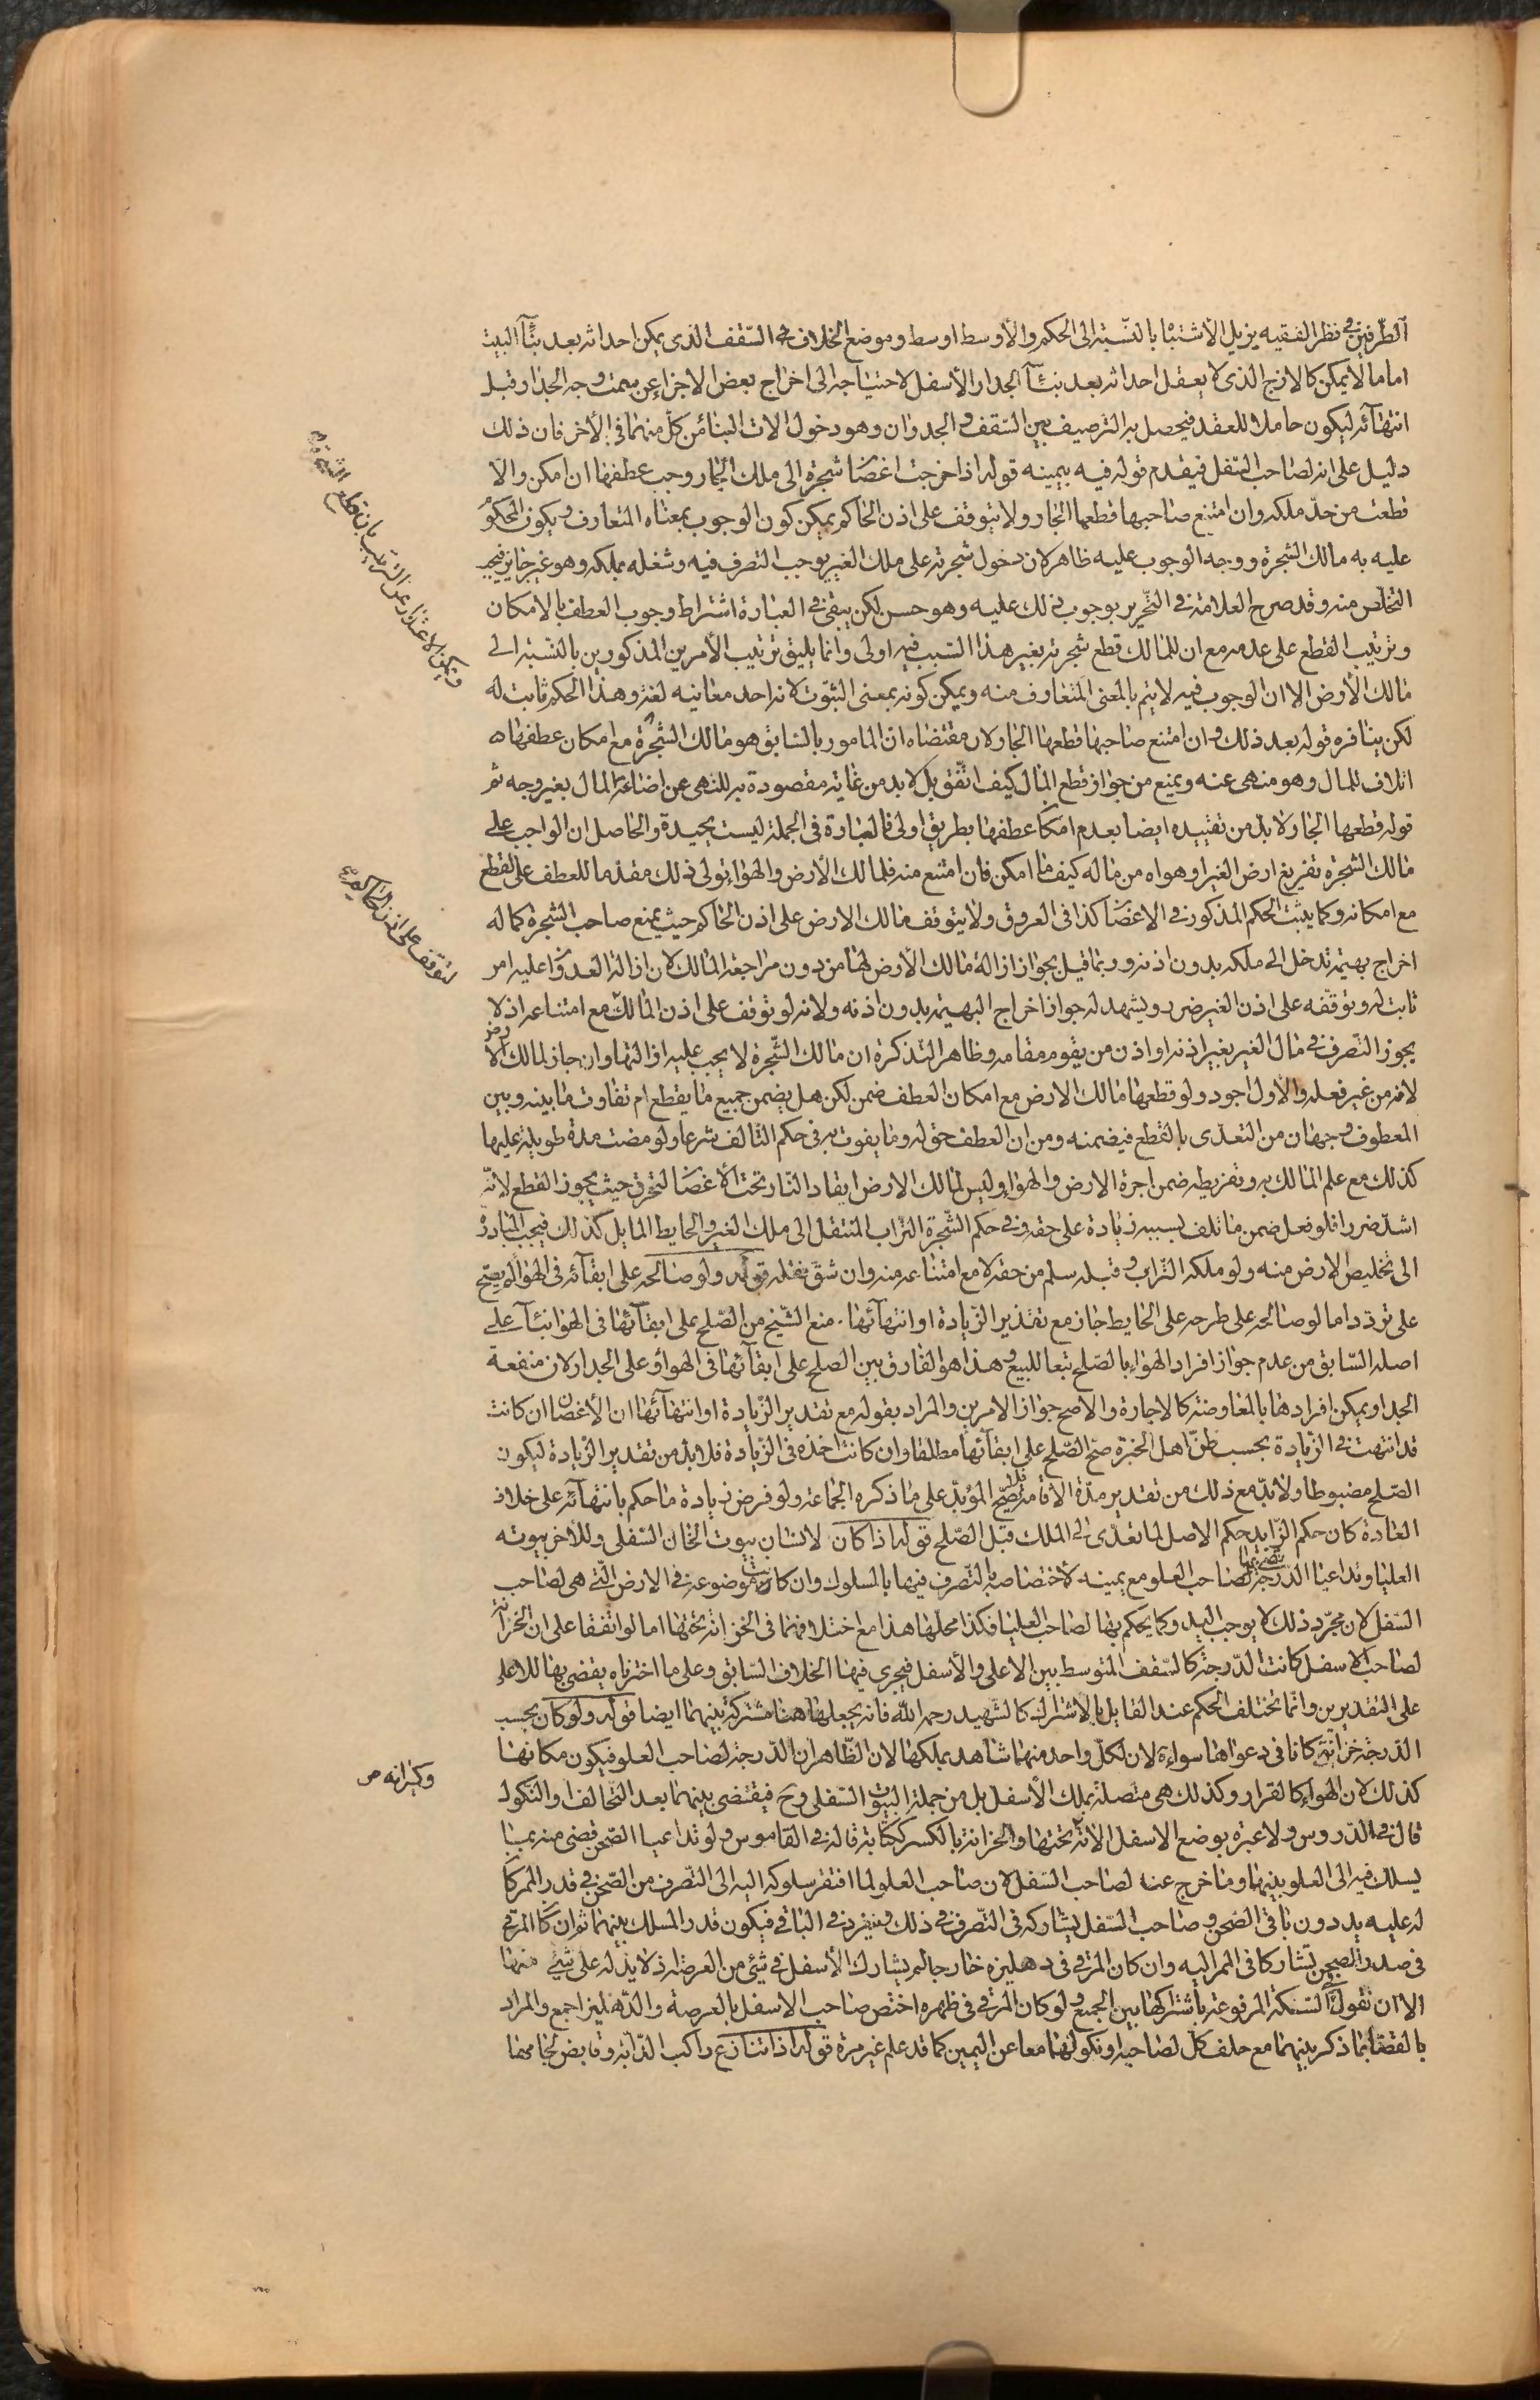 الطرفين في نظر الفقيه يزيل الاشتباه بالنسبة الى الحكم والأوسط اوسط وموضع الخلاف في السقف الذى يمكن احداثه بعد بناء البيت
اما ما لا يمكن كالازج الذى لا يعقل احداثه بعد بناء الجدار الأسفل لاحتياجه الى اخراج بعض الاجزاء عن سمت وجه الجدار قبل
انتهائه ليكون حاملا للعقد فيحصل به الترصيف بين السقف والجدران وهو دخول الات البناء من كل منهما فى الأخر فان ذلك
دليل على انه لصاحب السفل فيقدم قوله فيه بيمينه قوله اذا خرجت اغصان شجرة الى ملك الجار وجب عطفها ان امكن والا
قطعت من حد ملكه وان امتنع صاحبها قطعها الجار ولا يتوقف على اذن الحاكم يمكن كون الوجوب بمعناه المتعارف ويكون المحكوم
عليه به مالك الشجرة ووجه الوجوب عليه ظاهر لان دخول شجرته على ملك الغير يوجب التصرف فيه وشغله بملكه وهو غير جايز فيجب
التخلص منه وقد صرح العلامة في التحرير بوجوب ذلك عليه وهو حسن لكن يبقى في العبارة اشتراط وجوب العطف بالامكان
وترتيب القطع على عدمه مع ان للمالك قطع شجرته بغير هذا السبب فبه اولى وانما يليق ترتيب الأمرين المذكورين بالنسبة الى
مالك الأرض الا ان الوجوب فيه لا يتم بالمعنى المتعارف منه ويمكن كونه بمعنى الثبوت لانه احد معانيه لغة وهذا الحكم ثابت له
لكن ينافره قوله بعد ذلك وان امتنع صاحبها قطعها الجار لان مقتضاه ان المامور بالسابق هو مالك الشجرة مع امكان عطفها
اتلاف للمال وهو منهى عنه ويمنع من جواز قطع المال كيف اتفق بل لا بد من غاية مقصودة به للنهى عن اضاعة المال بغير وجه ثم
قوله قطعها الجار لا بد من تقييده ايضا بعدم امكان عطفها بطريق اولى فالعبارة فى الجملة ليست بجيدة والحاصل ان الواجب على
مالك الشجرة تفريغ ارض الغير او هواه من ماله كيف ما امكن فان امتنع منه فلمالك الأرض والهواء تولى ذلك مقدما للعطف على القطع
مع امكانه وكما يثبت الحكم المذكور في الاغصان كذا فى العروق ولا يتوقف مالك الارض على اذن الحاكم حيث يمنع صاحب الشجرة كما له
اخراج بهيمة تدخل الى ملكه بدون اذنه وربما قيل بجواز ازالة مالك الأرض لها من دون مراجعة المالك لان ازالة العدوان عليه امر
ثابت له وتوقفه على اذن الغير ضرر ويشهد له جواز اخراج البهيمة بدون اذنه ولانه لو توقف على اذن المالك مع امتناعه اذ لا
يجوز التصرف في مال الغير بغير اذنه او اذن من يقوم مقامه وظاهر التذكرة ان مالك الشجرة لا يجب عليه ازالتها وان جاز لمالك الأرض
لانه من غير فعله والأول اجود ولو قطعها مالك الارض مع امكان العطف ضمن لكن هل يضمن جميع ما يقطع ام تفاوت ما بينه وبين
المعطوف وجهان من التعدى بالقطع فيضمنه ومن ان العطف حق له وما يفوت به فى حكم التالف شرعا ولو مضت مدة طويلة عليها
كذلك مع علم المالك به وتفريطه ضمن اجرة الارض والهواء وليس لمالك الارض ايقاد النار تحت الأغصان لتحترق حيث يجوز القطع لانه
اشد ضررا فلو فعل ضمن ما تلف بسببه زيادة على حقه وفي حكم الشجرة التراب المنتقل الى ملك الغير والحايط المايل كذلك فيجب المبادرة
الى تخليص الارض منه ولو ملكه التراب وقبله سلم من حقه لا مع امتناعه منه وان شق نقله قوله ولو صالحه على ابقائه فى الهواء لم يصح
على تردد اما لو صالحه على طرحه على الحايط جاز مع تقدير الزيادة او انتهائها. منع الشيخ من الصلح على ابقائها فى الهوا بناء على
اصله السابق من عدم جواز افراد الهواء بالصلح تبعا للبيع وهذا هو الفارق بين الصلح على ابقائها فى الهواء وعلى الجدار لان منفعة
الجدار يمكن افرادها بالمعاوضة كالاجارة والأصح جواز الامرين والمراد بقوله مع تقدير الزيادة او انتهائها ان الأغصان ان كانت
قد انتهت في الزيادة بحسب ظن اهل الخبرة صح الصلح على ابقائها مطلقا وان كانت اخذه فى الزيادة فلا بد من تقدير الزيادة ليكون
الصلح مضبوطا ولا بد مع ذلك من تقدير مدة الاقامة فلا يصح المؤبد على ما ذكره الجماعة ولو فرض زيادة ما حكم بانتهائه على خلاف
العادة كان حكم الزايد حكم الاصل لما تعدى الى الملك قبل الصلح قوله اذا كان لانسان بيوت الخان السفلى وللأخر بيوته
العليا وتداعيا الدرجة قضى بها لصاحب العلو مع يمينه لأختصاصه بالتصرف فيها بالسلوك وان كانت موضوعة في الارض التى هى لصاحب
السفل لان مجرد ذلك لا يوجب اليد وكما يحكم بها لصاحب العليا فكذا محلها هذا مع اختلافهما فى الخزانة تحتها اما لو اتفقا على ان الخزانة
لصاحب الاسفل كانت الدرجة كالسقف المتوسط بين الاعلى والأسفل فيجرى فيها الخلاف السابق وعلى ما اخترناه يقضى بها للاعلى
على التقديرين وانما تختلف الحكم عند القايل بالاشتراك كالشهيد رحمه الله فانه يجعلها هنا مشتركة بينهما ايضا قوله ولو كان بحسب
الدرجة خزانة كانا فى دعواها سواء لان لكل واحد منهما شاهد بملكها لان الظاهر ان الدرجة لصاحب العلو فيكون مكانها
كذلك لان الهواء كالقرار وكذلك هى متصلة بملك الأسفل بل من جملة البيوت السفلى وح فيقتضى بينهما بعد التحالف او النكول
قال في الدروس ولا عبرة بوضع الاسفل الاته تحتها والخزانة بالكسر ككتابة قاله في القاموس ولو تداعيا الصحن قضى منه بما
يسلك فيه الى العلو بينهما وما خرج عنه لصاحب السفل لان صاحب العلو لما افتقر سلوكه اليه الى التصرف من الصحن في قدر الممر كان
له عليه يد دون باقى الصحن وصاحب السفل يشاركه فى التصرف في ذلك وينفرد في الباقى فيكون قدر المسلك بينهما ثم ان كان المرقى
فى صدر الصحن تشاركا فى الممر اليه وان كان المرقى فى دهليزه خارجا لم يشارك الأسفل في شئ من العرصة اذ لا يد له على شئ منها
الا ان نقول السكة المرفوعة باشتراكها بين الجميع ولو كان المرقى فى ظهره اختص صاحب الاسفل بالعرصة والدهليز اجمع والمراد
بالقضاء بما ذكر بينهما مع حلف كل لصاحبه او نكولهما معا عن اليمين كما قد علم غير مرة قوله اذا تنازع راكب الدابة وقابض لجامها
ويمكن الاعتذار عن الترتيب بان قطع الشجرة
لتوقف على اذن الحاكم